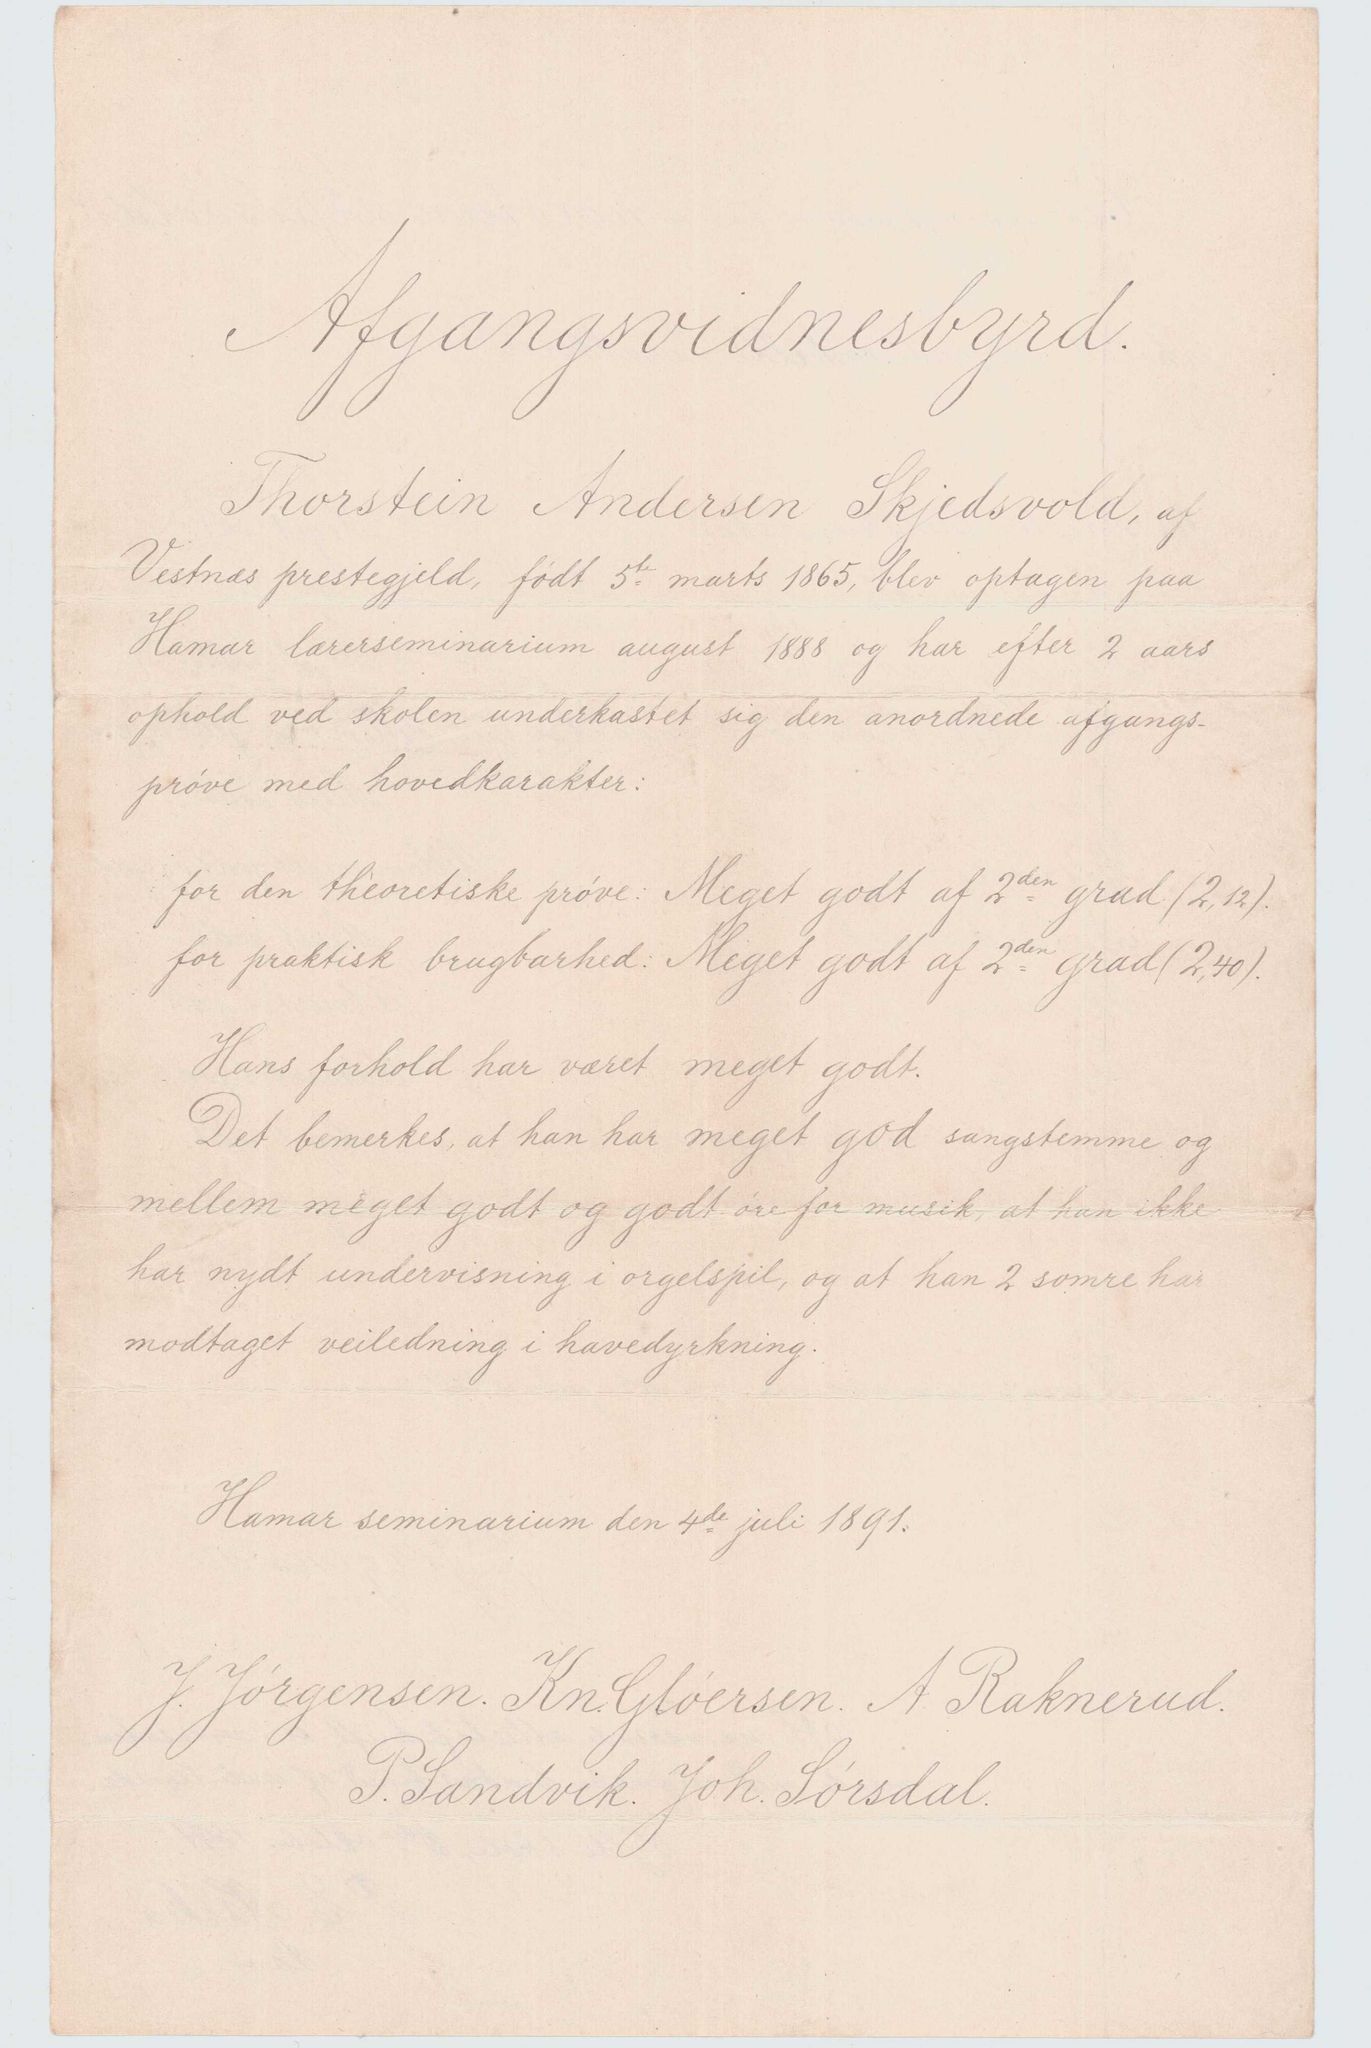 Afgangsvidnesbyrd.
Thorstein Andersen Skjedsvold, af
Vestnæs prestegjeld, født 5te marts 1865, blev optagen paa
Hamar lærerseminarium august 1888 og har efter 2 aars
ophold ved skolen underkastet sig den anordnede afgangs-
prøve med hovedkarakter:
for den theoretiske prøve: Meget godt af 2den grad (2,12).
for praktisk brugbarhed: Meget godt af 2den grad (2,40).
Hans forhold har været meget godt.
Det bemerkes, at han har meget god sangstemme og
mellem meget godt og godt øre for musik, at han ikke
har nydt undervisning i orgelspil, og at han 2 somre har
modtaget veiledning i havedyrkning.
Hamar seminarium den 4de juli 1891.
J. Jørgensen. Kn. Gløersen. A. Raknerud.
P. Sandvik. Joh. Sørsdal.